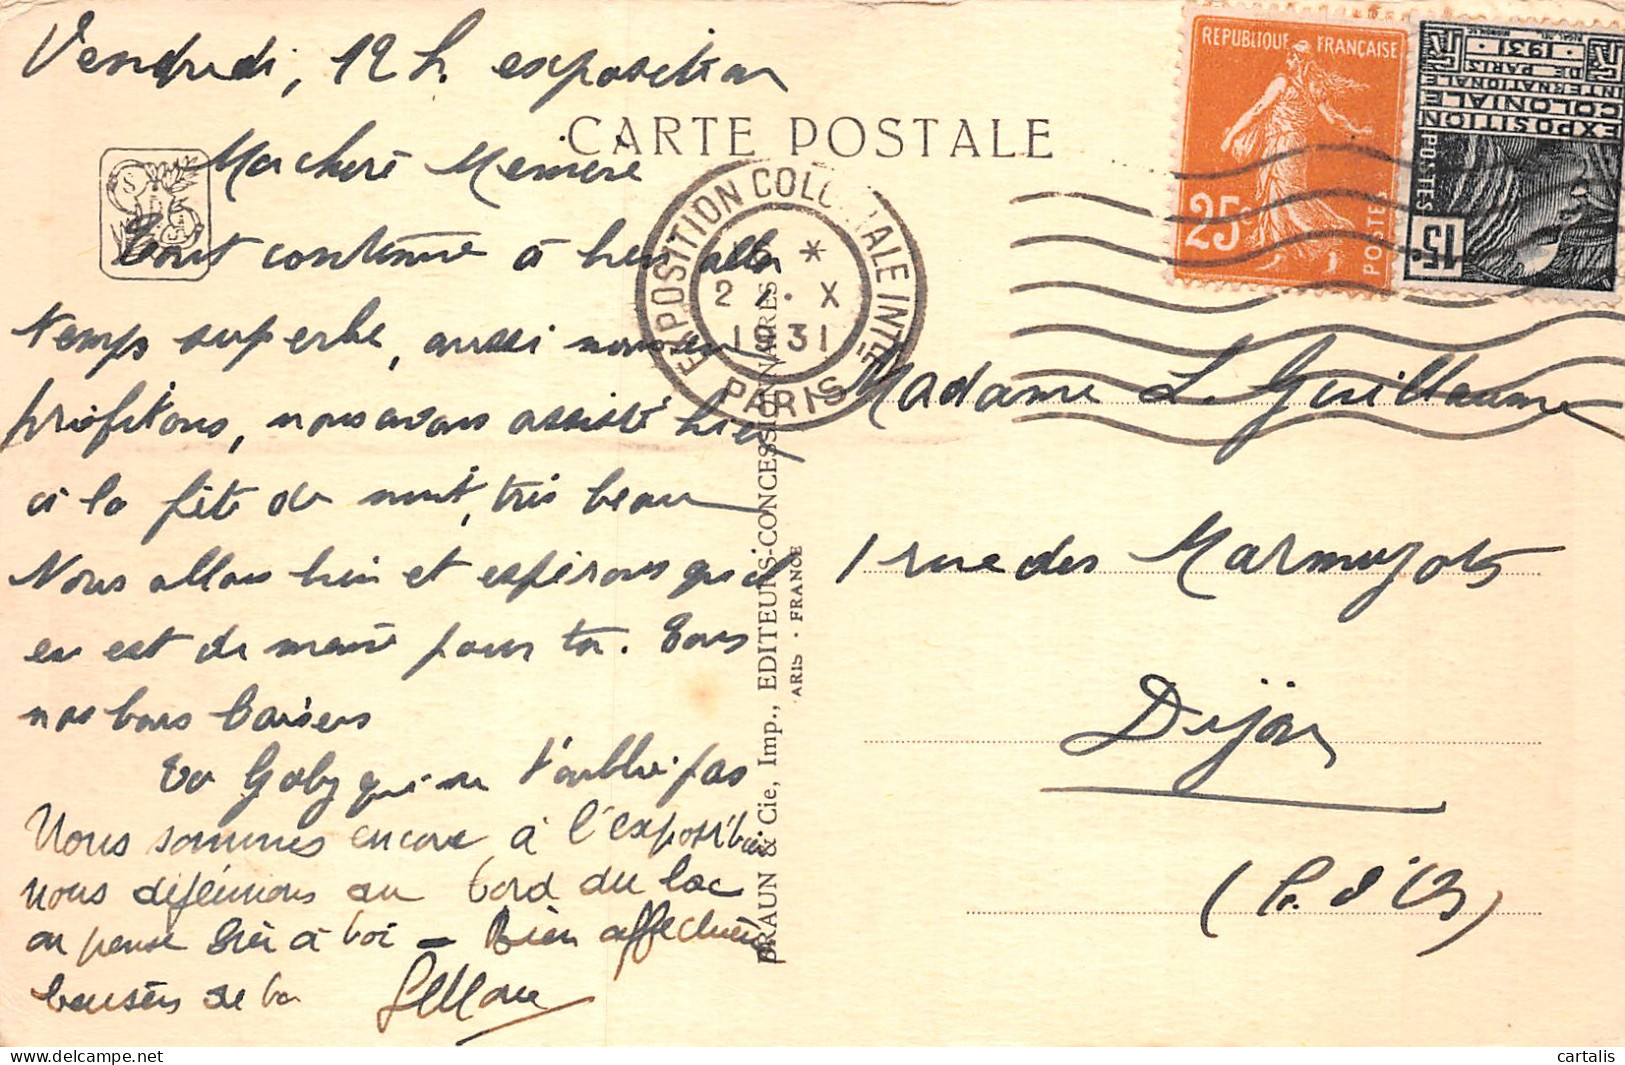 Vendredi, 12 h. exposition
CARTE POSTALE
Ma chère Mémère
Tout continue à bien aller
temps superbe, aussi nous en
profitons, nous avons assisté hier
à la fête de nuit, très beau
Nous allons bien et espérons qu'il
en est de même pour toi. Tous
nos bons baisers
Ta Gaby qui ne t'oublie pas
Nous sommes encore à l'exposition
nous déjeunons au bord du lac
on pense bien à toi - Bien affectueux
baisers de ta
REPUBLIQUE FRANÇAISE
25
POSTES
EXPOSITION
COLONIALE
INTERNATIONALE
DE PARIS
· 1931 ·
POSTES
15c
EXPOSITION COLONIALE INTLE
*
X
1931
PARIS
BRAUN & Cie, Imp., EDITEURS-CONCESSIONNAIRES
ARIS · FRANCE
Madame L. Guillaume
1 rue des Marmuzots
Dijon
(C. d'Or)
cartalis